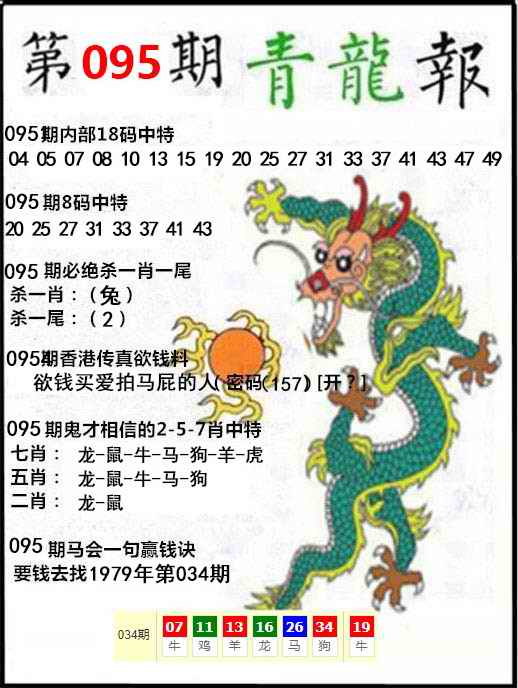 第095期青龍報
095期内部18码中特
04 05 07 08 10 13 15 19 20 25 27 31 33 37 41 43 47 49
095期8码中特
20 25 27 31 33 37 41 43
095期必绝杀一肖一尾
杀一肖：（兔）
杀一尾：（2）
095期香港传真欲钱料
欲钱买爱拍马屁的人(密码(157)[开？]
095期鬼才相信的2-5-7肖中特
七肖： 龙-鼠-牛-马-狗-羊-虎
五肖： 龙-鼠-牛-马-狗
二肖： 龙-鼠
095期马会一句赢钱诀
要钱去找1979年第034期
034期 07 11 13 16 26 34 19
牛 鸡 羊 龙 马 狗 牛